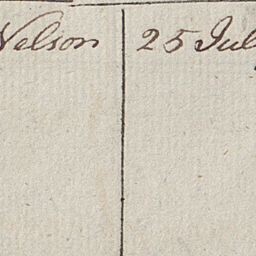 Nelson 25 Jul